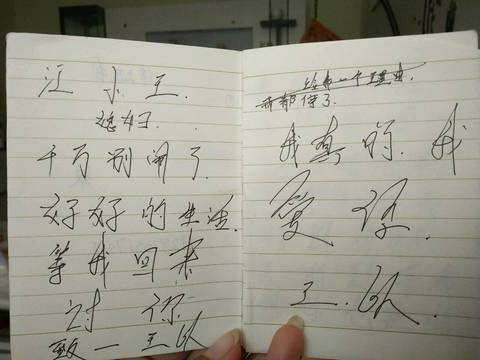 小王.
媳妇..
千万别闹了
好好的生活.
等我回来
讨你
致一王队
给我一个理由.
我都 了.
我真的.我
爱你.
王.队